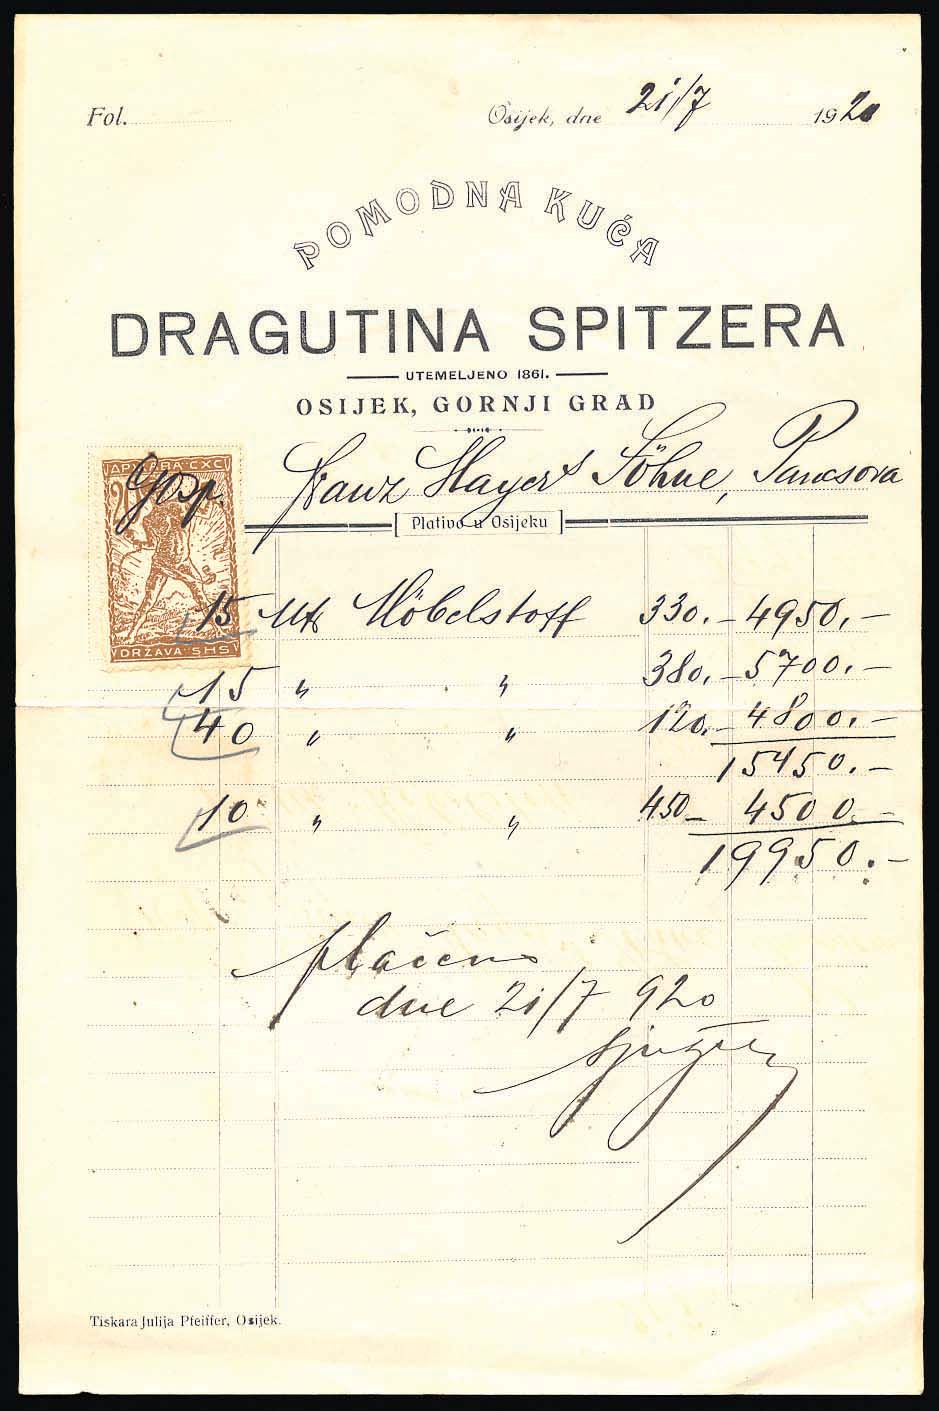 Fol. Osijek, dne 21/7 1920
POMODNA KUĆA
DRAGUTINA SPITZERA
UTEMELJENO 1861.
OSIJEK, GORNJI GRAD
ДРЖАВА СХС
20
Gosp. Franz Mayers Söhne, Pancsova
Plativo u Osijeku
DRŽAVA SHS
15 Mt Möbelstoff 330.– 4950.–
15 " " 380.– 5700.–
40 " " 120.– 4800.–
15450.–
10 " " 450– 4500.–
19950.–
plaćeno
dne 21/7 920
Spitzer
Tiskara Julija Pfeiffer, Osijek.